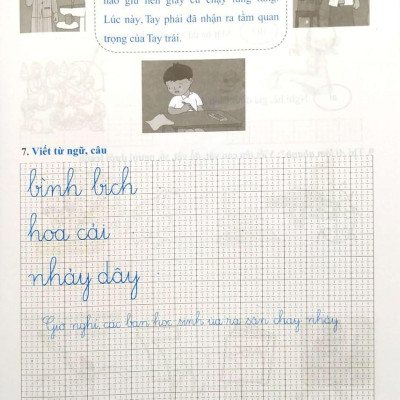 nào giữ nên giấy cứ chạy lung tung.
Lúc này, Tay phải đã nhận ra tầm quan
trọng của Tay trái.
7. Viết từ ngữ, câu
bình bịch
hoa cải
nhảy dây
Giờ nghỉ, các bạn học sinh ùa ra sân chạy nhảy.